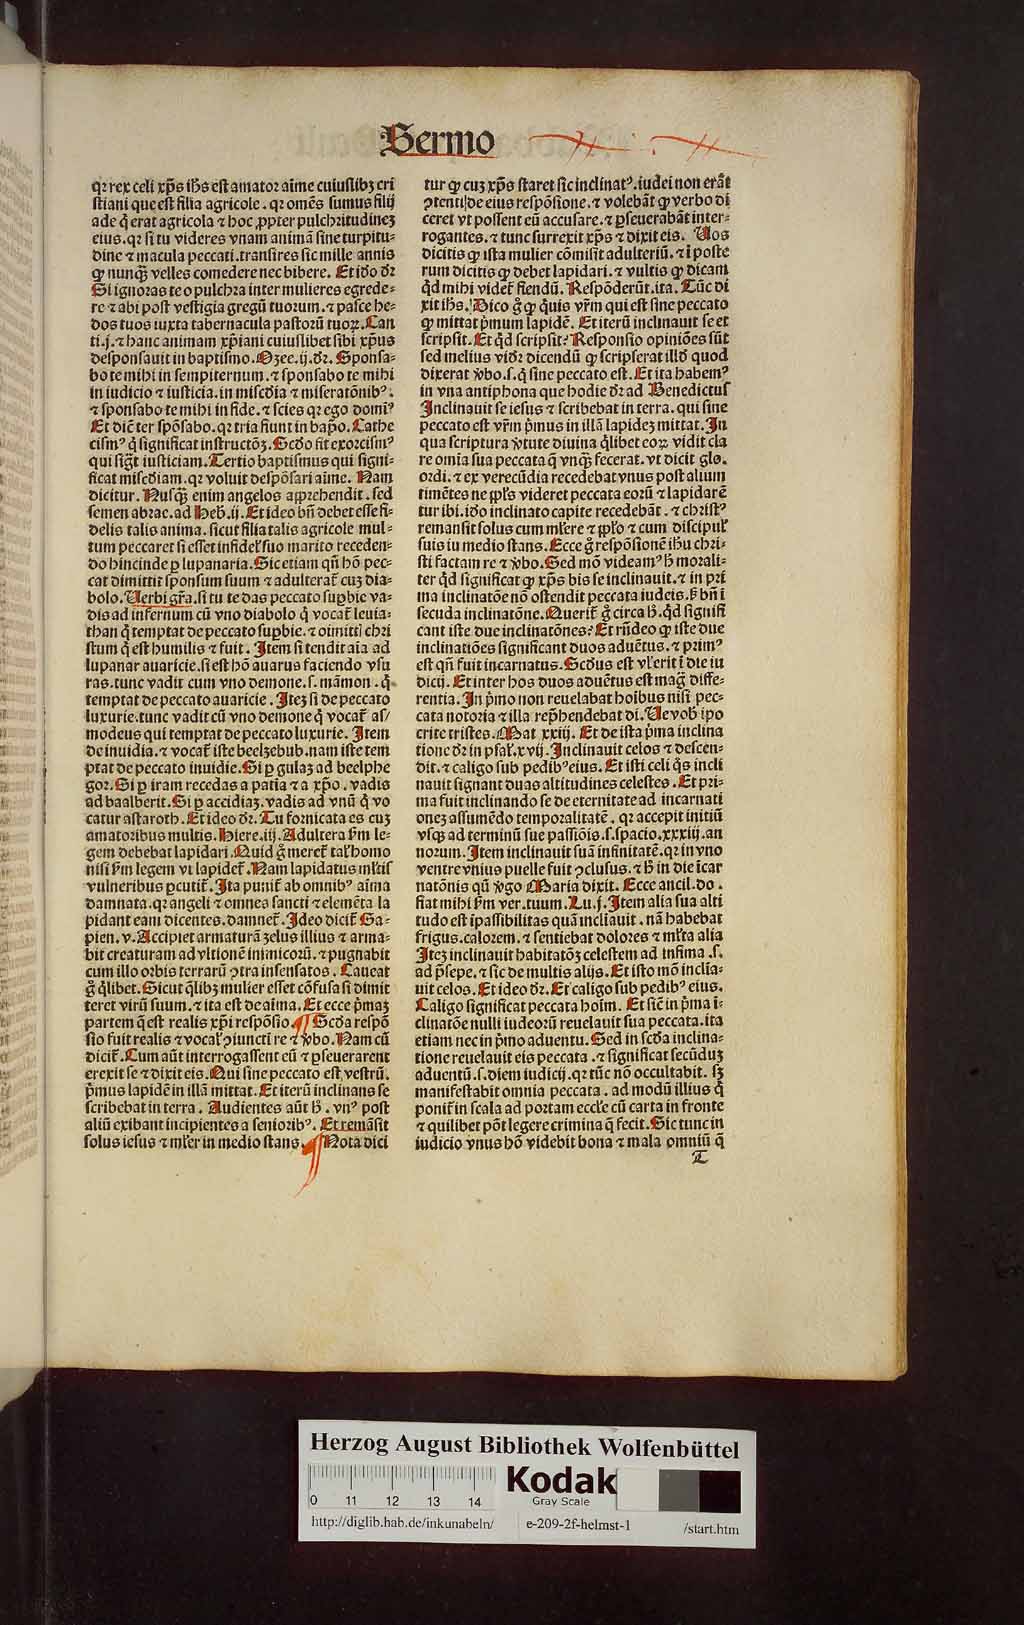 Sermo
qꝛ rex celi xp̄s ih̄s est amatoꝛ aīme cuiuslibꝫ cri
stiani que est filia agricole. qꝛ omēs sumus filij
ade q̇ erat agricola ⁊ hoc ꝓpter pulchꝛitudineꝫ
eius. qꝛ si tu videres vnam animā sine turpitu⸗
dine ⁊ macula peccati. transires sic mille annis
ꝙ nunqͣꝫ velles comedere nec bibere. Et iđo dꝛ̄
Si ignoras te o pulchꝛa inter mulieres egrede⸗
re ⁊ abi post vestigia gregū tuorum. ⁊ pasce he⸗
dos tuos iuxta tabernacula pastoꝛū tuoꝝ. Can
ti. j. ⁊ hanc animam xp̄iani cuiuslibet sibi xp̄us
desponsauit in baptismo. Ozee. ij. dꝛ̄. Sponsa⸗
bo te mihi in sempiternum. ⁊ sponsabo te mihi
in iudicio ⁊ iusticia. in miscđia ⁊ miseratōnibꝰ.
⁊ sponsabo te mihi in fide. ⁊ scies qꝛ ego domīꝰ
Et dic̄ ter spōsabo. qꝛ tria fiunt in bap̄o. Cathe
cismꝰ q̇ significat instructōꝫ. Scđo fit exoꝛcismꝰ
qui sig̅t iusticiam. Tertio baptismus qui signi⸗
ficat miscđiam. qꝛ voluit despōsari aīme. Nam
dicitur. Nusqͣꝫ enim angelos appꝛehendit. sed
semen abꝛae. ad Heb̄. ij. Et ideo bn̄ debet esse fi⸗
delis talis anima. sicut filia talis agricole mul⸗
tum peccaret si esset infidel̕ suo marito receden⸗
do hinc inde ꝑ lupanaria. Sic etiam qn̄ hō pec⸗
cat dimittit̄ sponsum suum ⁊ adulterat̄ cuꝫ dia⸗
bolo. Verbi gr̄a. si tu te das peccato suꝑbie va⸗
dis ad infernum cū vno diabolo q̇ vocat̄ leuia⸗
than q̇ temptat de peccato suꝑbie. ⁊ dimitti̇ chꝛi
stum q̇ est humilis ⁊ fuit. Item si tendit aīa ad
lupanar auaricie. si est hō auarus faciendo vsu
ras. tunc vadit cum vno demone. s. māmon. q̇
temptat de peccato auaricie. Iteꝫ si de peccato
luxurie. tunc vadit cū vno demone q̇ vocat̄ as/
modeus qui temptat de peccato luxurie. Item
de inuidia. ⁊ vocat̄ iste beelꝫebub. nam iste tem
ptat de peccato inuidie. Si ꝑ gulaꝫ ad beelphe
goꝛ. Si ꝑ iram recedas a patīa ⁊ a xp̄o. vadis
ad baalberit. Si ꝑ accidiaꝫ. vadis ad vnū q̇ vo
catur astaroth. Et ideo dꝛ̄. Tu foꝛnicata es cuꝫ
amatoꝛibus multis. Hiere. iij. Adultera ẜm le⸗
gem debebat lapidari. Quid g̊ meret̄ tal̕ homo
nisi ẜm legem vt lapidet̄. Nam lapidatus ml̕tis
vulneribus ꝑcutit̄. Ita punit̄ ab omnibꝰ aīma
damnata. qꝛ angeli ⁊ omnes sancti ⁊ elemēta la
pidant eam dicentes. damnet̄. Ideo dicit̄ Sa⸗
pien. v. Accipiet armaturā ꝫelus illius ⁊ arma⸗
bit creaturam ad vltionē inimicoꝛū. ⁊ pugnabit
cum illo oꝛbis terrarū ꝯtra insensatos. Caueat
g̊ q̇libet. Sicut q̄libꝫ mulier esset cōfusa si dimit
teret virū suum. ⁊ ita est de aīma. Et ecce p̄maꝫ
partem q̇ est realis xp̄i respōsio. ¶ Scđa respō
sio fuit realis ⁊ vocal̕ ꝯiuncti̇ re ⁊ v̓bo. Nam cū
dicit̄. Cum aūt interrogassent eū ⁊ ꝑseuerarent
erexit se ⁊ dixit eis. Qui sine peccato est vestrū.
p̄mus lapidē in illā mittat. Et iterū inclinans se
scribebat in terra. Audientes aūt h̄. vnꝰ post
aliū exibant incipientes a senioꝛibꝰ. Et remāsit
solus iesus ⁊ ml̕er in medio stans. ¶ Nota dici
tur ꝙ cuꝫ xp̄s staret sic inclinatꝰ. iudei non erāt
ꝯtenti de eius respōsione. ⁊ volebāt ꝙ verbo di
ceret vt possent eū accusare. ⁊ ꝑseuerabāt inter⸗
rogantes. ⁊ tunc surrexit xp̄s ⁊ dixit eis. Vos
dicitis ꝙ ista mulier cōmisit adulteriū. ⁊ ī poste
rum dicitis ꝙ debet lapidari. ⁊ vultis ꝙ dicam
qd̄ mihi videt̄ fiendū. Respōderūt. ita. Tūc di
xit ih̄s. Dico g̊ ꝙ q̇uis vr̄m qui est sine peccato
ꝙ mittat p̄mum lapidē. Et iterū inclinauit se et
scripsit. Et qd̄ scripsit? Responsio opiniōes sūt
sed melius vidꝛ̄ dicendū ꝙ scripserat illđ quod
dixerat v̓bo. s. q̇ sine peccato est. Et ita habemꝰ
in vna antiphona que hodie dꝛ̄ ad Benedictus
Inclinauit se iesus ⁊ scribebat in terra. qui sine
peccato est vr̄m p̄mus in illā lapideꝫ mittat. In
qua scriptura v̓tute diuina q̇libet eoꝝ vidit cla
re omīa sua peccata q̄ vnqͣꝫ fecerat. vt dicit glo.
oꝛdi. ⁊ ex verecūdia recedebat vnus post alium
timētes ne ppl̕s videret peccata eoꝛū ⁊ lapidarē
tur ibi. iđo inclinato capite recedebāt. ⁊ christꝰ
remansit solus cum ml̕ere ⁊ ppl̕o ⁊ cum discipul̕
suis in medio stans. Ecce g̊ respōsionē ih̄u chꝛi⸗
sti factam re ⁊ v̓bo. Sed mō videamꝰ h̄ moꝛali⸗
ter qd̄ significat ꝙ xp̄s bis se inclinauit. ⁊ in pꝛi
ma inclinatōne nō ostendit peccata iudeis. ẜ bn̄ ī
secuda inclinatōne. Querit̄ g̊ circa h̄. qd̄ signifi
cant iste due inclinatōnes? Et rn̄deo ꝙ iste due
inclinatiōes significant duos aduētus. ⁊ pꝛimꝰ
est qn̄ fuit incarnatus. Scđus est vl̕erit ī die iu
dicij. Et inter hos duos aduētus est mag̅ diffe⸗
rentia. In p̄mo non reuelabat hoībus nisi pec⸗
cata notoꝛia ⁊ illa rep̄hendebat di. Ve vob̄ ipo
crite tristes. Mat xxiij. Et de ista p̄ma inclina
tione dꝛ̄ in psal̕. xvij. Inclinauit celos ⁊ descen⸗
dit. ⁊ caligo sub pedibꝰ eius. Et isti celi q̊s incli
nauit signant duas altitudines celestes. Et pꝛi⸗
ma fuit inclinando se de eternitate ad incarnati
oneꝫ assumēdo tempoꝛalitatē. qꝛ accepit initiū
vsqꝫ ad terminū sue passiōis. s. spacio. xxxiij. an
noꝛum. Item inclinauit suā infinitatē. qꝛ in vno
ventre vnius puelle fuit ꝯclusus. ⁊ h̄ in die īcar
natōnis qn̄ v̓go Maria dixit. Ecce ancil. do.
fiat mihi ẜm ver. tuum. Lu. j. Item alia sua alti
tudo est īpassibilitas quā incliauit. nā habebat
frigus. caloꝛem. ⁊ sentiebat doloꝛes ⁊ ml̕ta alia
Iteꝫ inclinauit habitatōꝫ celestem ad infima. s.
ad p̄sepe. ⁊ sic de multis alijs. Et isto mō inclia⸗
uit celos. Et ideo dꝛ̄. Et caligo sub pedibꝰ eius.
Caligo significat peccata hoīm. Et sic̄ in p̄ma ī⸗
clinatōe nulli iudeoꝛū reuelauit sua peccata. ita
etiam nec in p̄mo aduentu. Sed in scđa inclina⸗
tione reuelauit eis peccata. ⁊ significat secūduꝫ
aduentū. s. diem iudicij. qꝛ tūc nō occultabit. sꝫ
manifestabit omnia peccata. ad modū illius q̇
ponit̄ in scala ad poꝛtam eccl̕e cū carta in fronte
⁊ quilibet pōt legere crimina q̄ fecit. Sic tunc in
iudicio vnus hō videbit bona ⁊ mala omniū q̄
T
Herzog August Bibliothek Wolfenbüttel
0 11 12 13 14
Kodak
Gray Scale
http://diglib.hab.de/inkunabeln/ e-209-2f-helmst-1 /start.htm